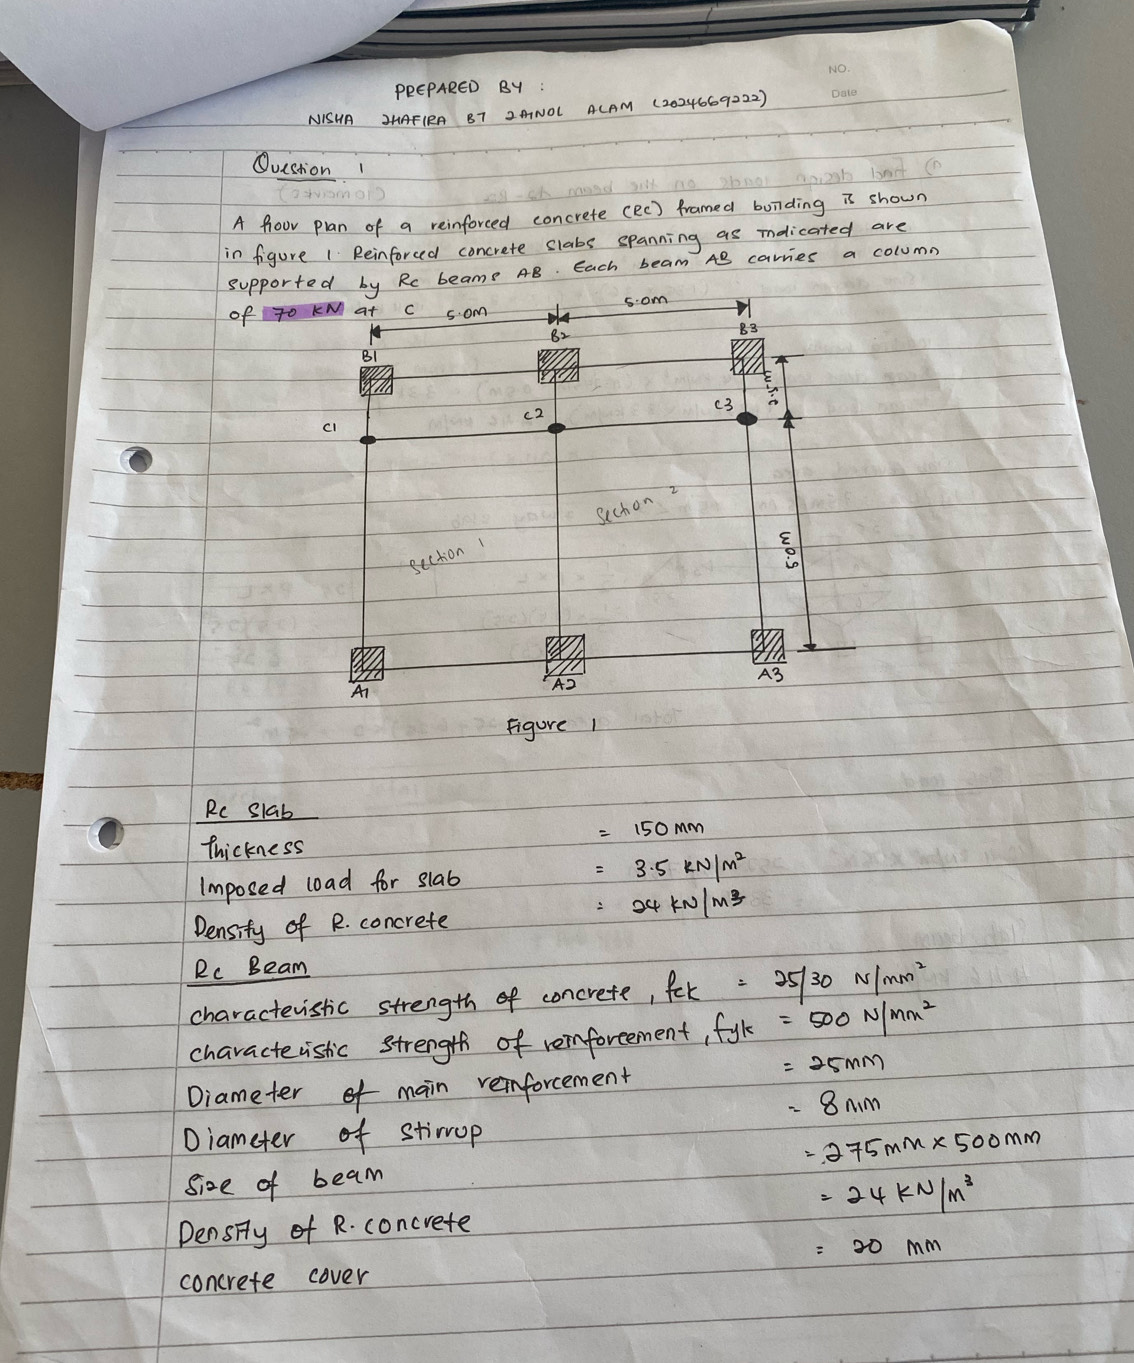 NO.
PREPARED BY :
Date
NISHA ZHAFIRA BT ZAINOL ALAM (2024669222)
Question 1
A floor plan of a reinforced concrete (RC) framed building is shown
in figure 1. Reinforced concrete slabs spanning as indicated are
supported by RC beams AB. Each beam AB carries a column
of 70 KN at C
5.0m
5.0m
B1
B2
B3
2.5m
C1
C2
C3
Section 1
Section 2
5.0m
A1
A2
A3
Figure 1
Rc Slab
Thickness = 150 mm
Imposed load for slab = 3.5 KN/m²
Density of R. concrete = 24 KN/m³
Rc Beam
characteristic strength of concrete, fck = 25/30 N/mm²
characteristic strength of reinforcement, fyk = 500 N/mm²
Diameter of main reinforcement = 25mm
Diameter of stirrup = 8mm
Size of beam = 275mm x 500mm
Density of R. concrete = 24 KN/m³
concrete cover = 20 mm